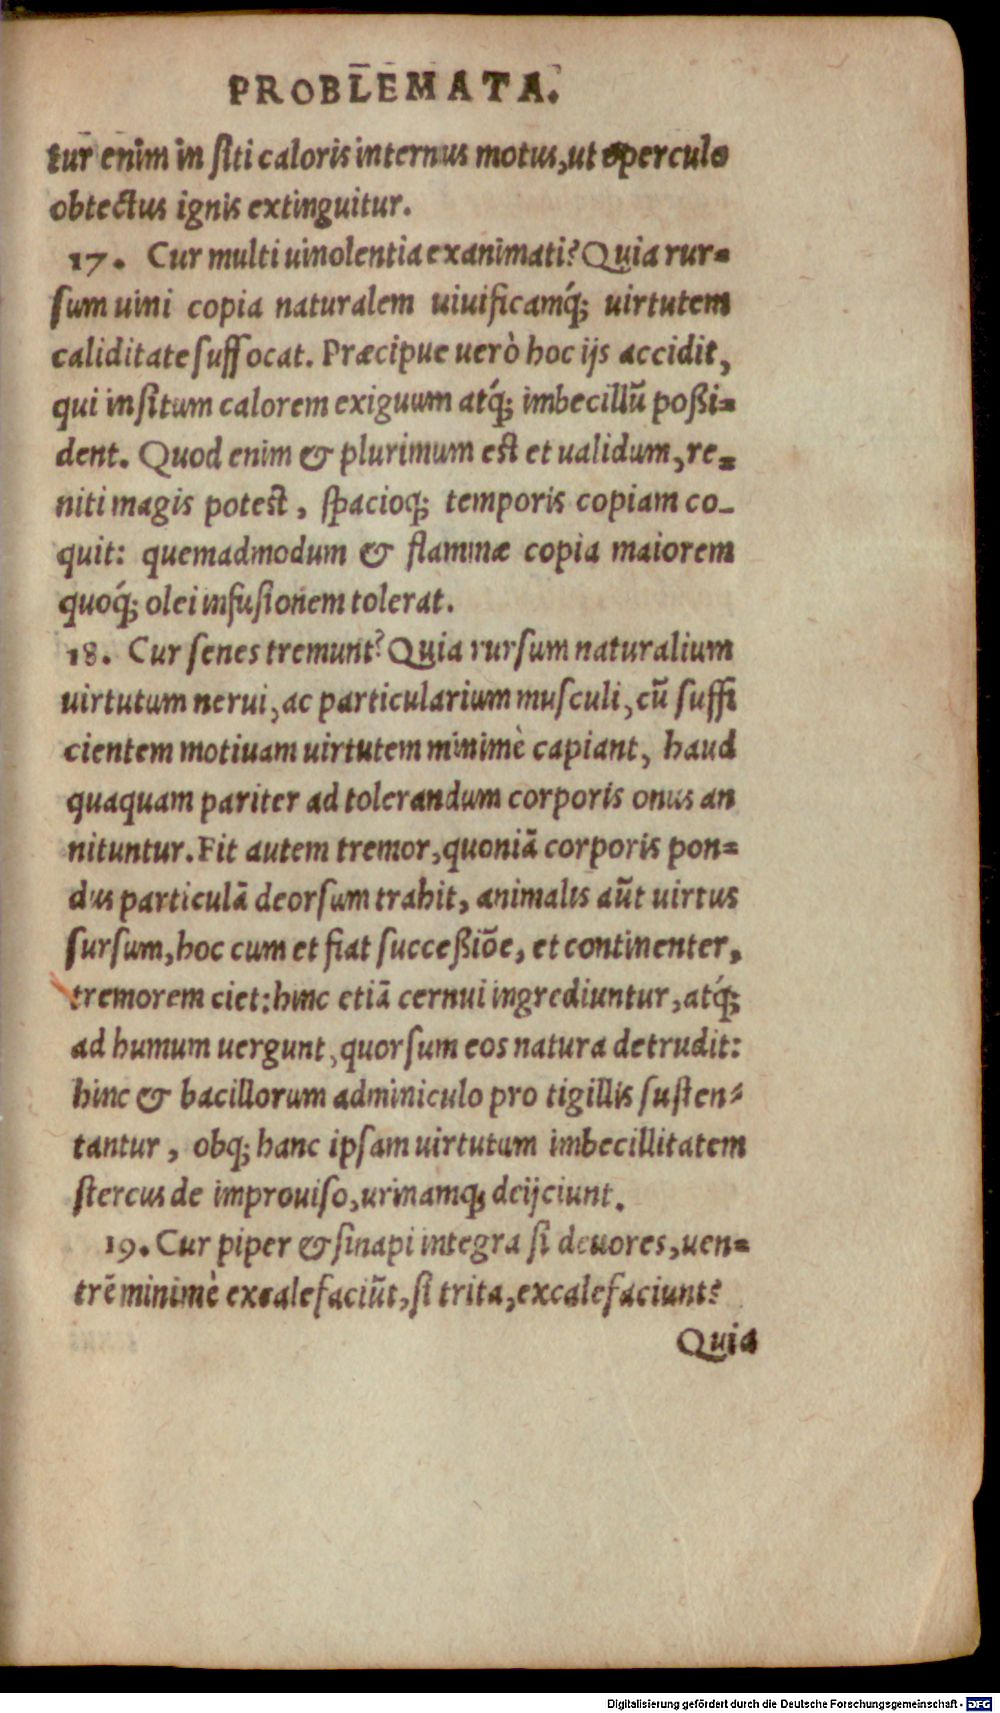 PROBLEMATA.
tur enim in siti caloris internus motus, ut operculo
obtectus ignis extinguitur.
17. Cur multi uinolentia exanimati? Quia rur=
sum uini copia naturalem uiuificamq́; uirtutem
caliditate suffocat. Præcipue uerò hoc ijs accidit,
qui insitum calorem exiguum atq́; imbecillũ poßi=
dent. Quod enim & plurimum est et ualidum, re=
niti magis potest, spacioq; temporis copiam co_
quit: quemadmodum & flammæ copia maiorem
quoq́; olei infusionem tolerat.
18. Cur senes tremunt? Quia rursum naturalium
uirtutum nerui, ac particularium musculi, cũ suffi
cientem motiuam uirtutem minimè capiant, haud
quaquam pariter ad tolerandum corporis onus an
nituntur. Fit autem tremor, quoniã corporis pon=
dus particulã deorsum trahit, animalis aũt uirtus
sursum, hoc cum et fiat succeßiõe, et continenter,
tremorem ciet: hinc etiã cernui ingrediuntur, atq́;
ad humum uergunt, quorsum eos natura detrudit:
hinc & bacillorum adminiculo pro tigillis susten=
tantur, obq; hanc ipsam uirtutum imbecillitatem
stercus de improuiso, urinamq; deijciunt.
19. Cur piper & sinapi integra si deuores, uen=
trẽ minimè excalefaciũt, si trita, excalefaciunt?
Quia
Digitalisierung gefördert durch die Deutsche Forschungsgemeinschaft - DFG